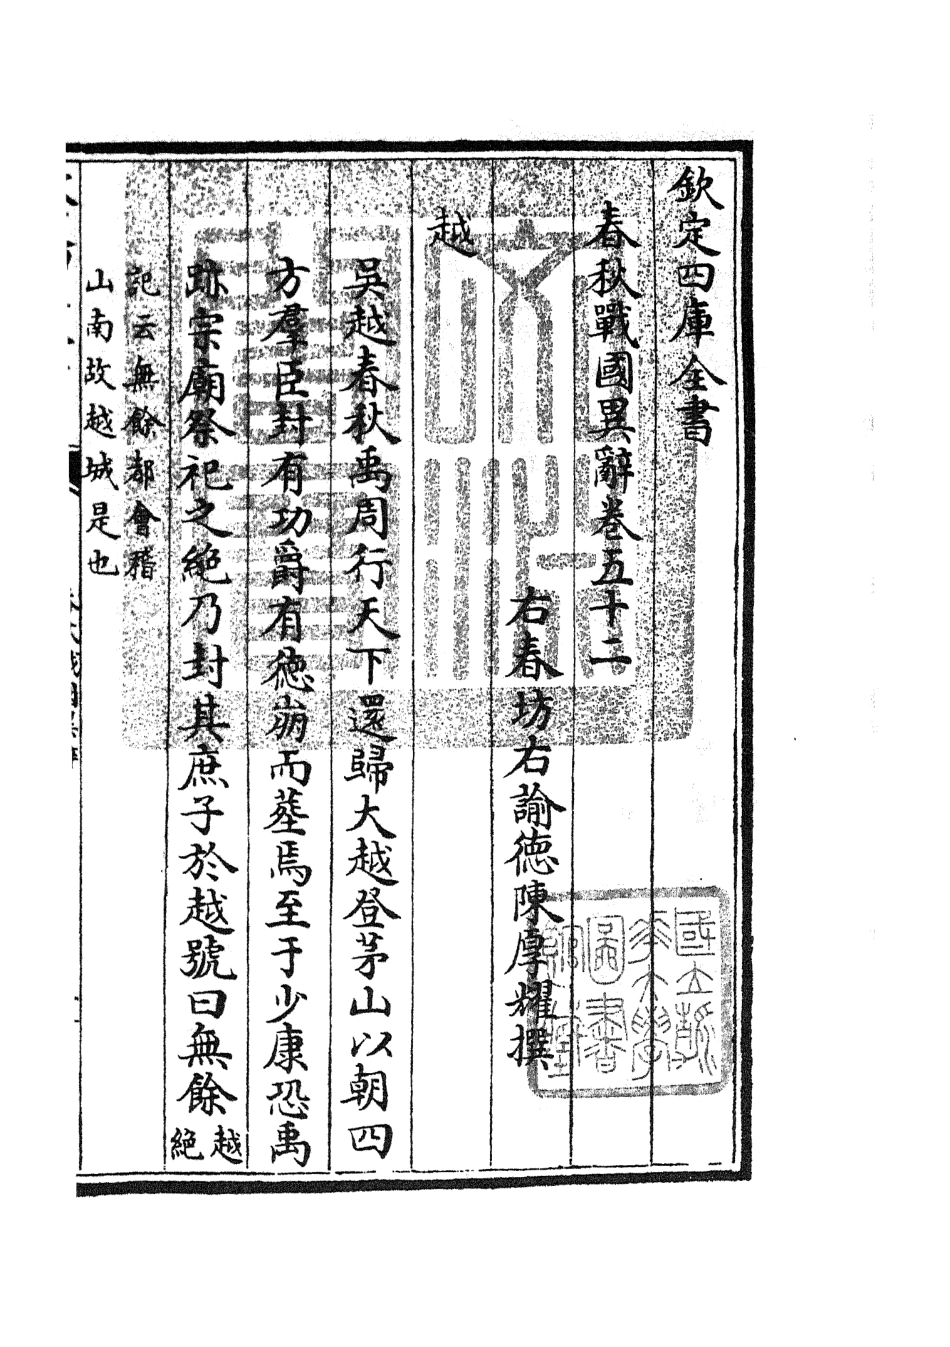 欽定四庫全書
春秋戰國異辭卷五十二
右春坊右諭德陳厚耀撰
越
吳越春秋禹周行天下還歸大越登茅山以朝四
方羣臣封有功爵有德崩而塟焉至于少康恐禹
跡宗廟祭祀之絶乃封其庶子於越號曰無餘越絶
記云無餘都會稽
山南故越城是也